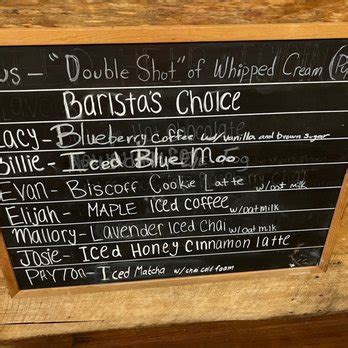 us - "Double Shot" of Whipped Cream (Pu
Barista's Choice
Lacy- Blueberry coffee w/vanilla and brown sugar
Billie- Iced Blue Moo
Evan- Biscoff Cookie Latte w/oat milk
Elijah- MAPLE Iced coffee w/oatmilk
Mallory- Lavender Iced Chai w/oat milk
Josie- Iced Honey Cinnamon latte
Payton- Iced Matcha w/chai cold foam